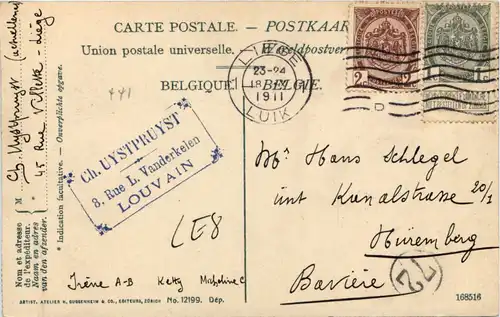 CARTE POSTALE. - POSTKAART
Union postale universelle. Wereldpostver
BELGIQUE BELGIE.
LIEGE
23-24
1911
LUIK
2 2
1 1
441
Ch. UYSTPRUYST
8, Rue L. Vanderkelen
LOUVAIN
Ch Uystpruyst
45 Rue Villette Liège
M
* Indication facultative. - Onverplichte opgave.
Nom et adresse
de l'expéditeur.
Naam en adres
van den afzender.
Mr Hans Schlegel
Kanalstrasse 20/1
Nüremberg
Bavière
72
LE8
Irène A-B Ketty C
ARTIST. ATELIER H. GUGGENHEIM & CO., EDITEURS, ZÜRICH No. 12199. Dép.
168516